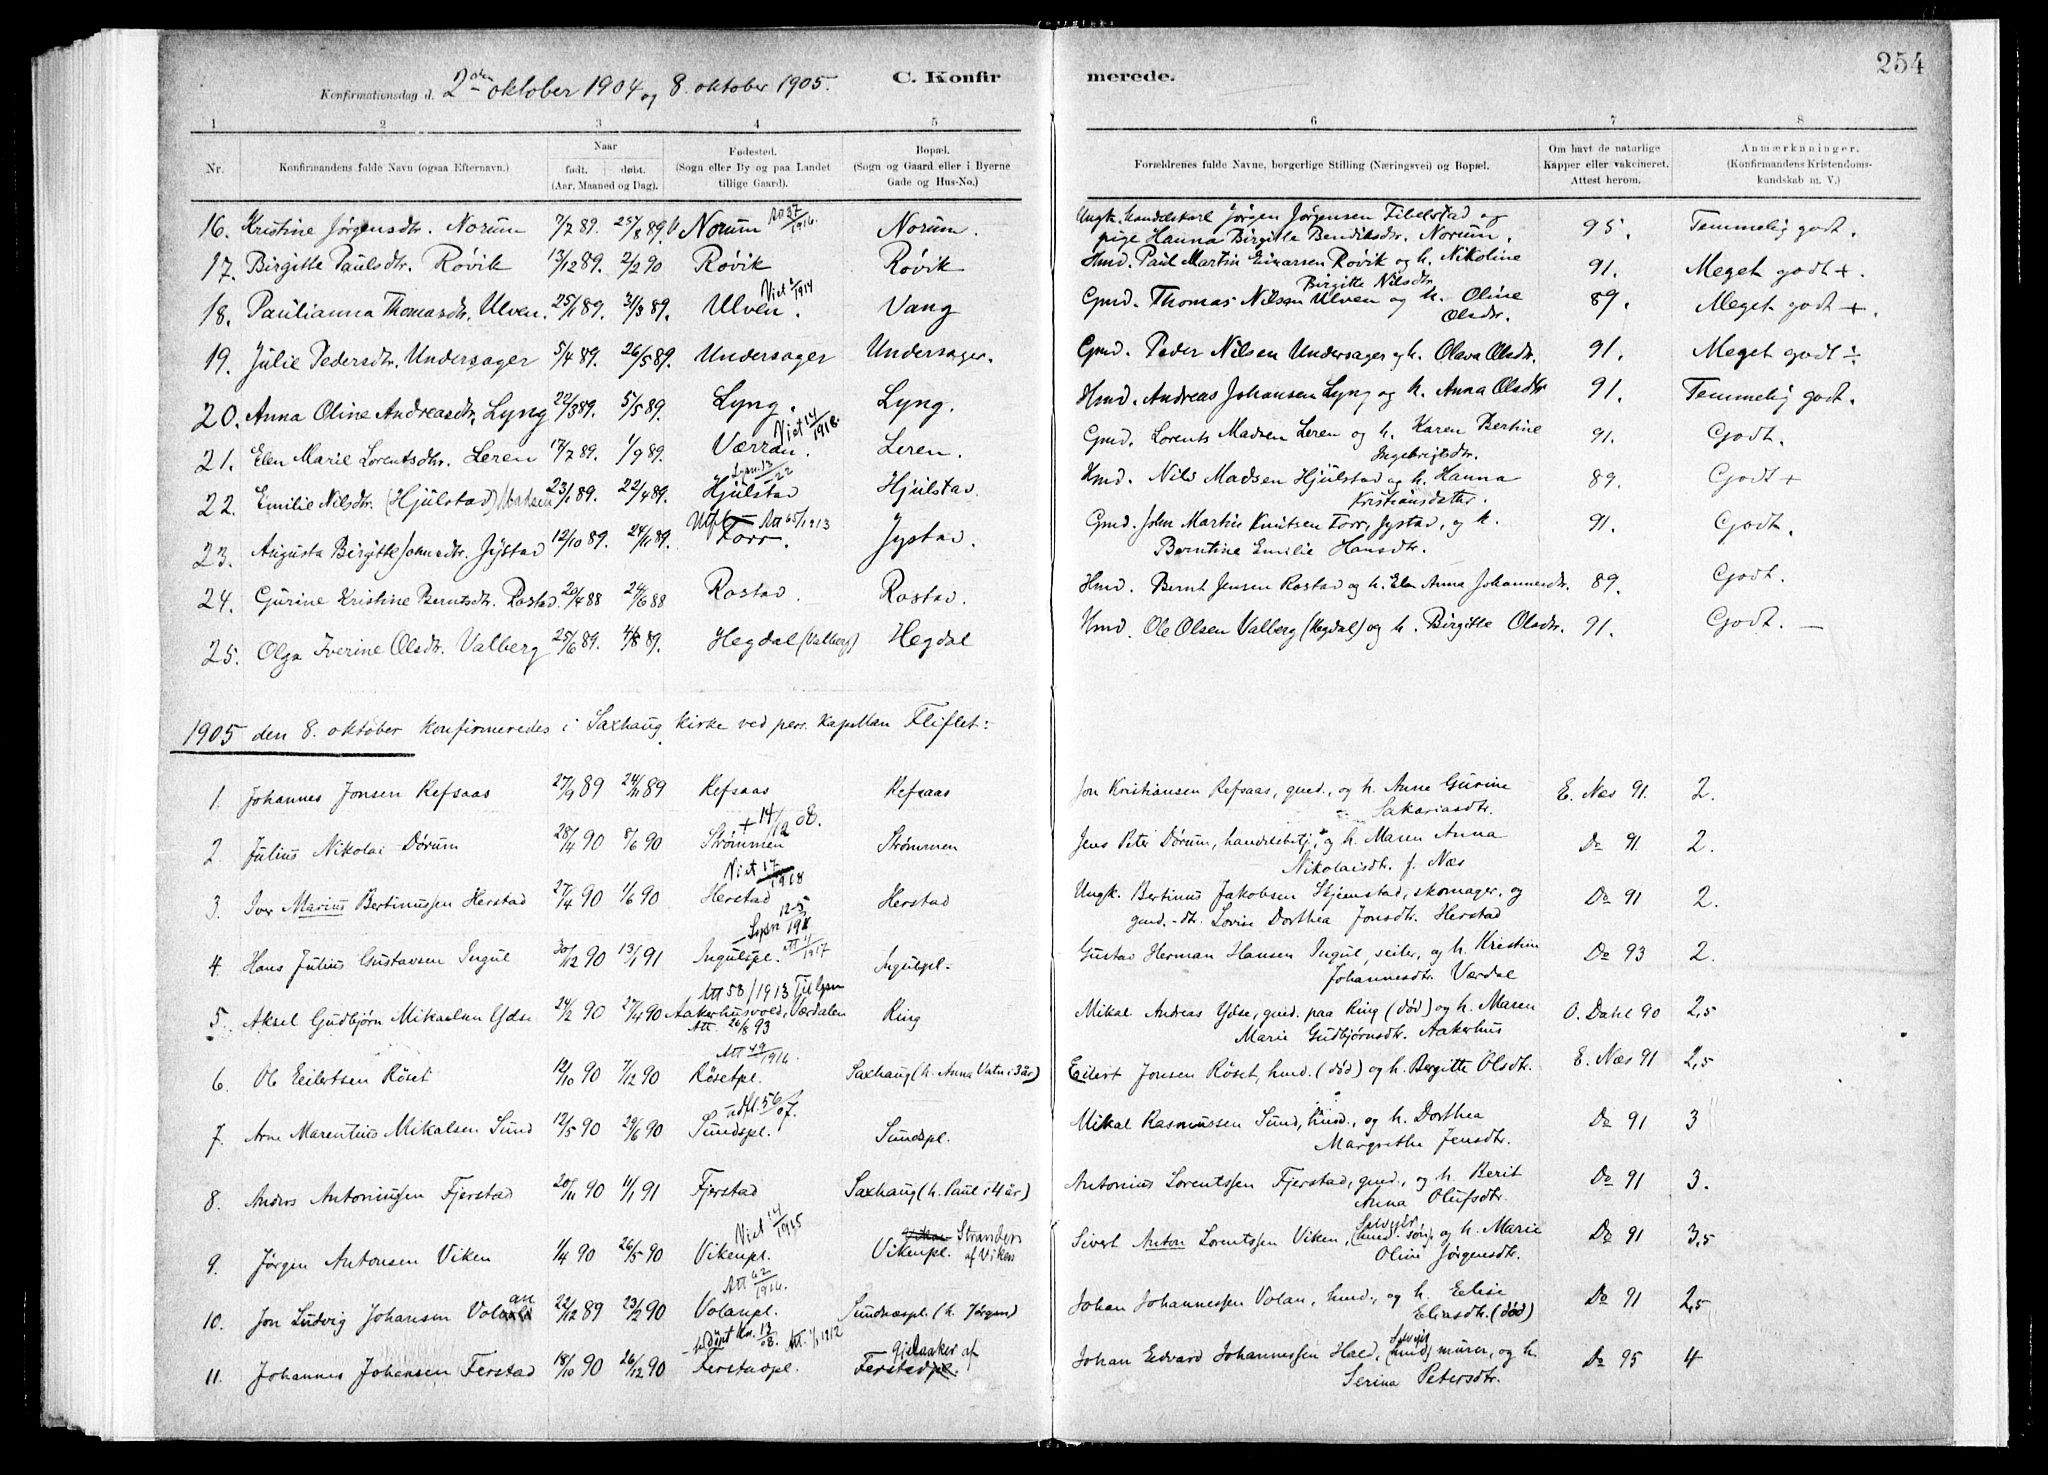 254
Konfirmationsdag d. 2den oktober 1904 og 8. oktober 1905. C. Konfirmerede.
1 2 3 4 5 6 7 8
Nr. Konfirmandens fulde Navn (ogsaa Efternavn.) Naar født. døbt. (Aar, Maaned og Dag). Fødested. (Sogn eller By og paa Landet tillige Gaard). Bopæl. (Sogn og Gaard eller i Byerne Gade og Hus-No.) Forældrenes fulde Navne, borgerlige Stilling (Næringsvei) og Bopæl. Om havt de naturlige Kapper eller vakcineret. Attest herom. Anmærkninger. (Konfirmandens Kristendomskundskab m. V.)
16. Kristine Jørgensdtr. Norum 7/7 89. 25/8 89. Norum Att 37/1916. Norum. Ungk. handelskarl Jørgen Jørgensen Fibelstad og pige Hanna Birgitte Bendiksdtr. Norum. 95. Temmelig godt.
17. Birgitte Paulsdtr. Røvik 13/12 89. 2/2 90 Røvik Røvik Hmd. Paul Martin Einarsen Røvik og h. Nikoline Birgitte Nilsdtr 91. Meget godt +.
18. Paulianna Thomasdtr. Ulven. 25/1 89. 31/3 89. Ulven. Viet 2/1914 Vang Gmd. Thomas Nilsen Ulven og h. Oline Olsdtr. 89. Meget godt +.
19. Julie Pedersdtr. Undersager 5/4 89. 26/5 89. Undersager Undersager. Gmd. Peder Nilsen Undersager og h. Olava Olsdtr. 91. Meget godt ÷
20. Anna Oline Andreasdtr. Lyng 22/3 89. 5/5 89. Lyng. Lyng. Hmd. Andreas Johansen Lyng og h. Anna Olsdtr 91. Temmelig godt.
21. Elen Marie Lorentsdtr. Leren 17/7 89. 1/9 89. Værran. Viet 14/1918. Leren. Gmd. Lorents Madsen Leren og h. Karen Bertine Ingebrigtsdtr. 91. Godt.
22. Emilie Nilsdtr. (Hjulstad) Madsen 23/1 89. 22/4 89. Hjulstad Hjulstad. Hmd. Nils Madsen Hjulstad og h. Hanna Kristiansdatter. 89. Godt +
23. Augusta Birgitte Johnsdtr. Jystad 12/10 89. 24/11 89. Torr. Att 65/1913 Jystad. Gmd. John Martin Knutsen Torr, Jystad, og h. Berntine Emilie Hansdtr. 91. Godt.
24. Gurine Kristine Berntsdtr. Rostad. 20/4 88 24/6 88 Rostad. Rostad. Hmd. Bernt Jensen Rostad og h. Elen Anna Johannesdtr. 89. Godt.
25. Olga Iverine Olsdtr. Valberg 25/6 89. 4/8 89. Hegdal (Valberg) Hegdal Hmd. Ole Olsen Valberg (Hegdal) og h. Birgitte Olsdtr. 91. Godt. —
1905 den 8. oktober konfirmeredes i Saxhaug kirke ved pers. kapellan Fliflet:
1. Johannes Jonsen Refsaas 27/9 89 24/11 89 Refsaas Refsaas Jon Kristiansen Refsaas, gmd., og h. Anne Gurine Sakariasdtr. E. Næs 91. 2.
2 Julius Nikolai Dørum 28/4 90 8/6 90 Strømmen + 14/12 08. Strømmen Jens Peter Dørum, handelsbetj., og h. Maren Anna Nikolaisdtr. f. Næs Do 91. 2.
3. Iver Marius Bertinussen Herstad 27/4 90 1/6 90 Herstad Viet 17/1918 Herstad Ungk. Bertinus Jakobsen Skjemstad, skomager, og gmd.-dt. Lovise Dorthea Jonsdtr. Herstad Do 91 2.
4. Hans Julius Gustavsen Ingul 30/12 90 13/1 91 Ingulspl. Ingulspl. Gustav Herman Hansen Ingul, seiler, og h. Kristine Johannesdtr. Værdal Do 93 2.
5. Aksel Gudbjørn Mikaelsen Ydse 24/2 90 27/4 90 Att 58/1913 Aakerhusvold, Værdalen Att. 26/8 93 Ring Mikal Andreas Ydse, gmd. paa Ring (død) og h. Maren Marie Gudbjørnsdtr. Aakerhus O. Dahl 90 2,5
6. Ole Eilertsen Røset 12/10 90 7/12 90 Att 49/1916. Røsetpl. Saxhaug (h. Anna Vatn i 3 år) Eilert Jonsen Røset, hmd. (død) og h. Bergitte Olsdtr. E. Næs 91 2,5
7. Arne Marentius Mikalsen Sund 12/5 90 29/6 90 udfl. 56/07. Sundspl. Sundspl. Mikal Rasmussen Sund, husd., og h. Dorthea Margrethe Jensdtr. Do 91 3
8. Anders Antoniussen Fjerstad 20/11 90 11/1 91 Fjerstad Saxhaug (h. Paul i 4 år) Antonius Lorentssen Fjerstad, gmd., og h. Berit Anna Olufsdtr. Do 91 3.
9. Jørgen Antonsen Viken 1/4 90 26/5 90 Viet 14/1915 Vikenpl. Vikenpl. Stranden af Viken Sivert Anton Lorentssen Viken, og h. Marie Oline Jørgensdtr. Do 91 3,5
10. Jon Ludvig Johansen Volan 22/12 89 23/2 90 Att 62/1916. Volanpl. Sundnæspl. (h. Jørgen) Johan Johannessen Volan, hmd., og h. Eelise Eliasdtr. (død) Do 91 2,5
11. Johannes Johansen Ferstad 18/10 90 26/12 90 Att. 1/1 1912 Ferstadpl. Gjetaaker af Ferstad Johan Edvard Johannessen Hald, murer, og h. Serina Petersdtr. Do 95 4